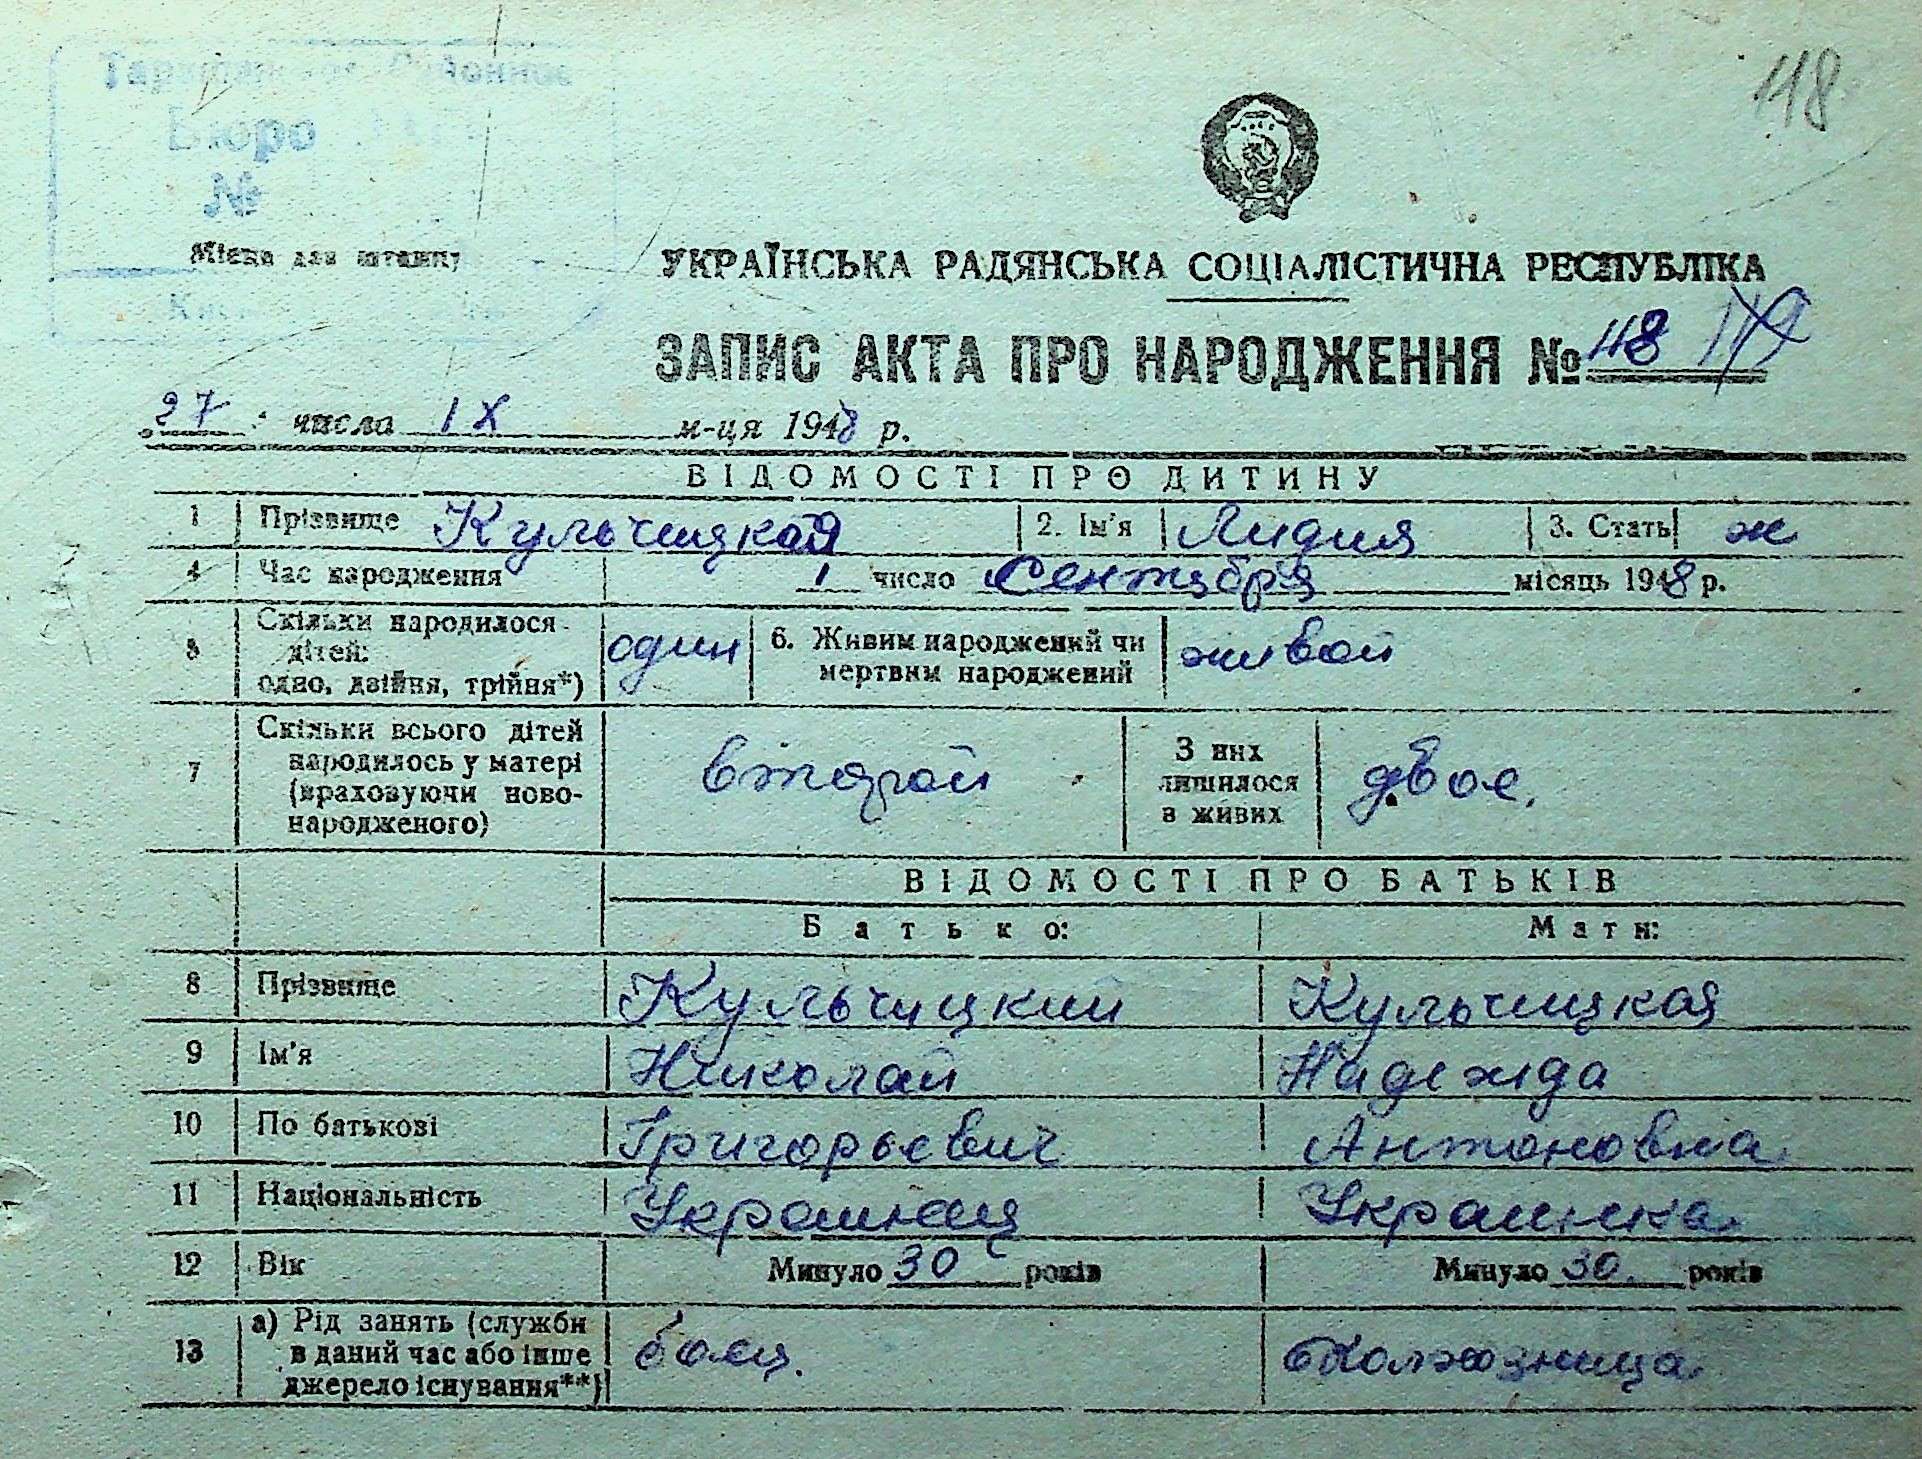 118
Бюро
№
Місце для штампу
УКРАЇНСЬКА РАДЯНСЬКА СОЦІАЛІСТИЧНА РЕСПУБЛІКА
ЗАПИС АКТА ПРО НАРОДЖЕННЯ № 118 119
27 числа IX м-ця 1948 р.
ВІДОМОСТІ ПРО ДИТИНУ
1 Прізвище Кульчицкая 2. Ім'я Лидия 3. Стать ж
4 Час народження 1 число Сентября місяць 1948 р.
5 Скільки народилося дітей: одно, двійня, трійня*) один 6. Живим народжений чи мертвим народжений живой
7 Скільки всього дітей народилось у матері (враховуючи новонародженого) второй З них лишилося в живих двое.
ВІДОМОСТІ ПРО БАТЬКІВ
Батько: Мати:
8 Прізвище Кульчицкий Кульчицкая
9 Ім'я Николай Надежда
10 По батькові Григорьевич Антоновна
11 Національність Украинец Украинка
12 Вік Минуло 30 років Минуло 30 років
13 а) Рід занять (служби в даний час або інше джерело існування**) боец. Колхозница